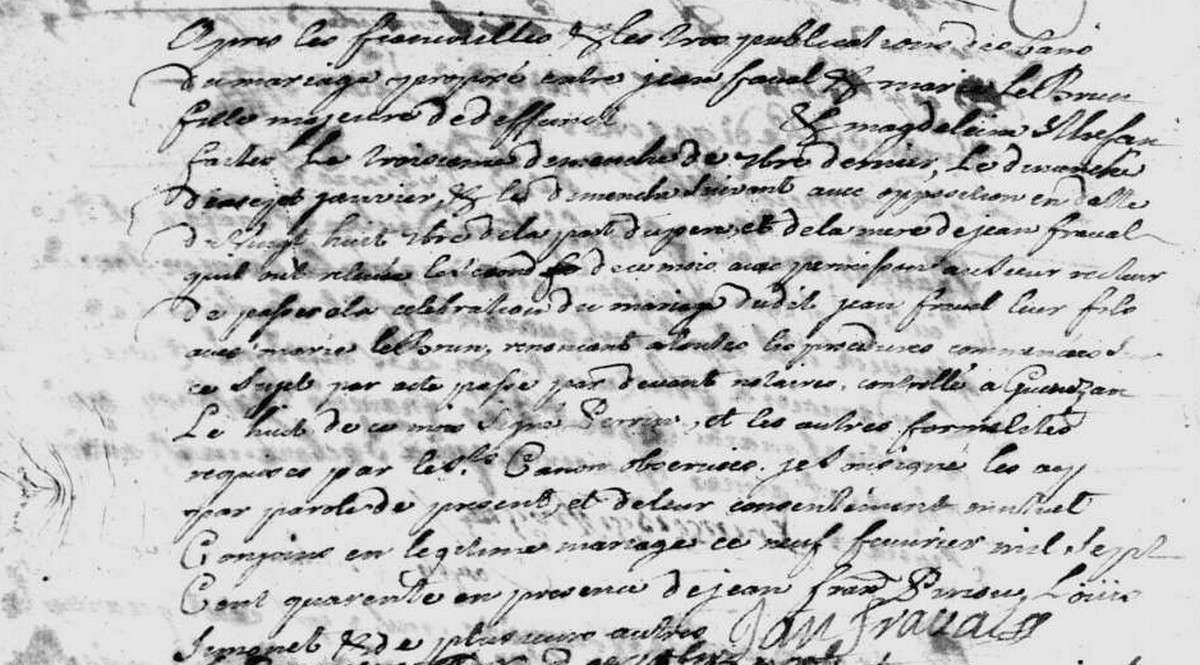 Apres les fiancailles & les trois publications des bans
du mariage proposé entre jean fraval & marie le Brun
fille majeure de deffunct & magdeleine
faittes le troisieme dimanche de xbre dernier, le dimanche
dixsept janvier, & le dimanche suivant avec opposition en datte
du vingt huit xbre de la part du pere, et de la mere de jean fraval
quil ont relevée le second de ce mois avec permission au sieur recteur
de passer a la celebration du mariage dudit jean fraval leur fils
avec marie le Brun, renoncant a toutes les procedures commencées
ce sujet par acte passe par devant notaires, controllé a
Le huit de ce mois signé Perrin, et les autres formalités
requises par les Sts Canons observées. je soussigné les ay
par parole de present, et de leur consentement mutuel
Conjoins en legitime mariage ce neuf fevrier mil sept
Cent quarente en presence de jean Loüis
& de plusieurs autres Jan fraval